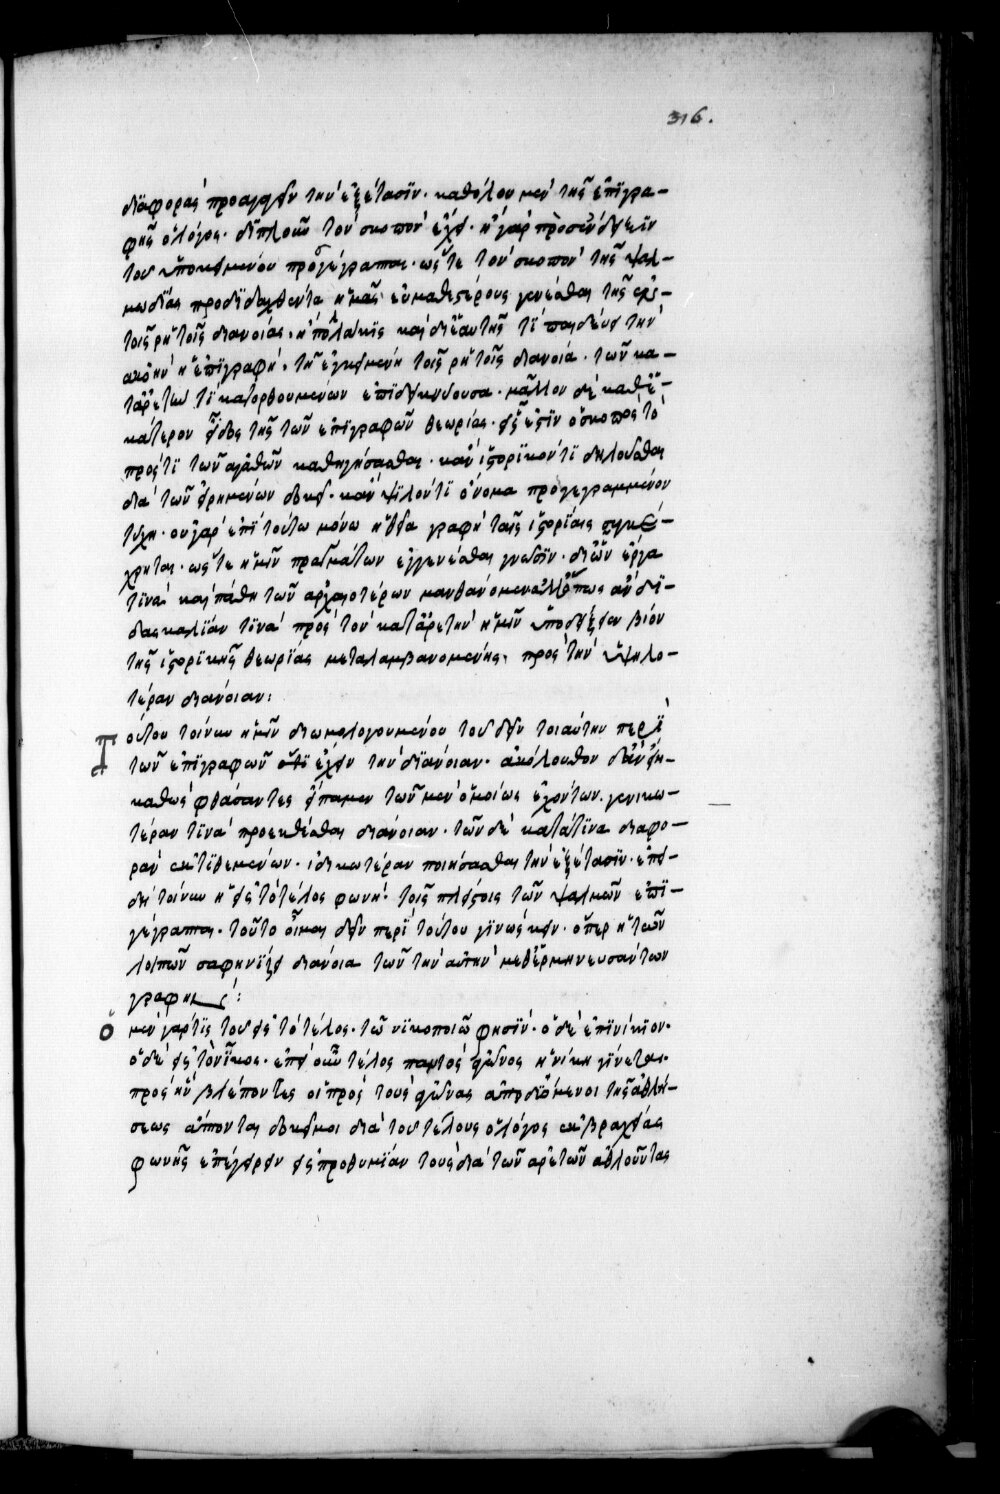 316.
διαφορὰς προαγαγεῖν τὴν ἐξέτασιν. καθόλου μὲν τῆς ἐπιγρα-
φῆς ὁ λόγος. διπλοῦν τὸν σκοπὸν ἔχει. ἢ γὰρ πρὸς ἔνδειξιν
τοῦ ὑποκειμένου προγέγραπται. ὥστε τὸν σκοπὸν τῆς ψαλ-
μωδίας προδιδαχθέντα ἡμᾶς εὐμαθεστέρους γενέσθαι τῆς ἐν
τοῖς ῥητοῖς διανοίας. ἢ πολλάκις καὶ δι' ἑαυτῆς τι παιδεύει τὴν
ἀκοὴν ἡ ἐπιγραφὴ. τῇ ἐγκειμένῃ τοῖς ῥητοῖς διανοίᾳ. τῶν κα-
τ' ἀρετὴν τι κατορθουμένων ἐπιδεικνύουσα. μᾶλλον δὲ καθ' ἑ-
κάτερον εἶδος τῆς τῶν ἐπιγραφῶν θεωρίας. εἷς ἐστιν ὁ σκοπὸς τὸ
πρός τι τῶν ἀγαθῶν καθηγήσασθαι. κἂν ἱστορικόν τι δηλοῦσθαι
διὰ τῶν εἰρημένων δοκεῖ. κἂν ψιλόν τι ὄνομα προγεγραμμένον
τύχη. οὐ γὰρ ἐπὶ τούτω μόνω ἡ θεία γραφὴ ταῖς ἱστορίαις συγκέ-
χρηται. ὥστε ἡμῖν πραγμάτων ἐγγενέσθαι γνῶσιν. δι' ὧν ἔργα
τινὰ καὶ πάθη τῶν ἀρχαιοτέρων μανθάνομεν ἀλλ' ὅπως ἂν δι-
δασκαλίαν τινὰ πρὸς τὸν κατ' ἀρετὴν ἡμῖν ὑποδείξειεν βίον
τῆς ἱστορικῆς θεωρίας μεταλαμβανομένης. πρὸς τὴν ὑψηλο-
τέραν διάνοιαν:
Τούτου τοίνυν ἡμῖν διωμολογουμένου τοῦ δεῖν τοιαύτην περὶ
τῶν ἐπιγραφῶν ἔχειν τὴν διάνοιαν. ἀκόλουθον ἂν εἴη
καθὼς φθάσαντες εἴπαμεν τῶν μὲν ὁμοίως ἐχόντων. γενικω-
τέραν τινὰ προεκθέσθαι διάνοιαν. τῶν δὲ κατά τινα διαφο-
ρὰν ἐκτιθεμένων. ἰδικωτέραν ποιήσασθαι τὴν ἐξέτασιν. ἐπει-
δὴ τοίνυν ἡ εἰς τὸ τέλος φωνὴ. τοῖς πλείστοις τῶν ψαλμῶν ἐπι-
γέγραπται. τοῦτο οἶμαι δεῖν περὶ τούτου γινώσκειν. ὅπερ ἡ τῶν
λοιπῶν σαφηνίζει διάνοια τῶν τὴν αὐτὴν μεθερμηνευσάντων
γραφὴν:
ὁ μὲν γάρ τις τοῦ εἰς τὸ τέλος. τῶ νικοποιῶ φησὶν. ὁ δὲ ἐπινίκιον.
ὁ δὲ εἰς τὸ νῖκος. ἐπεὶ οὖν τέλος παντὸς ἀγῶνος ἡ νίκη γίνεται.
πρὸς ἣν βλέποντες οἱ πρὸς τοὺς ἀγῶνας ἀποδυόμενοι τῆς ἀθλή-
σεως ἅπτονται δοκεῖ μοι διὰ τοῦ τέλους ὁ λόγος ἐκ βραχείας
φωνῆς ἐπεγείρειν εἰς προθυμίαν τοὺς διὰ τῶν ἀρετῶν ἀθλοῦντας